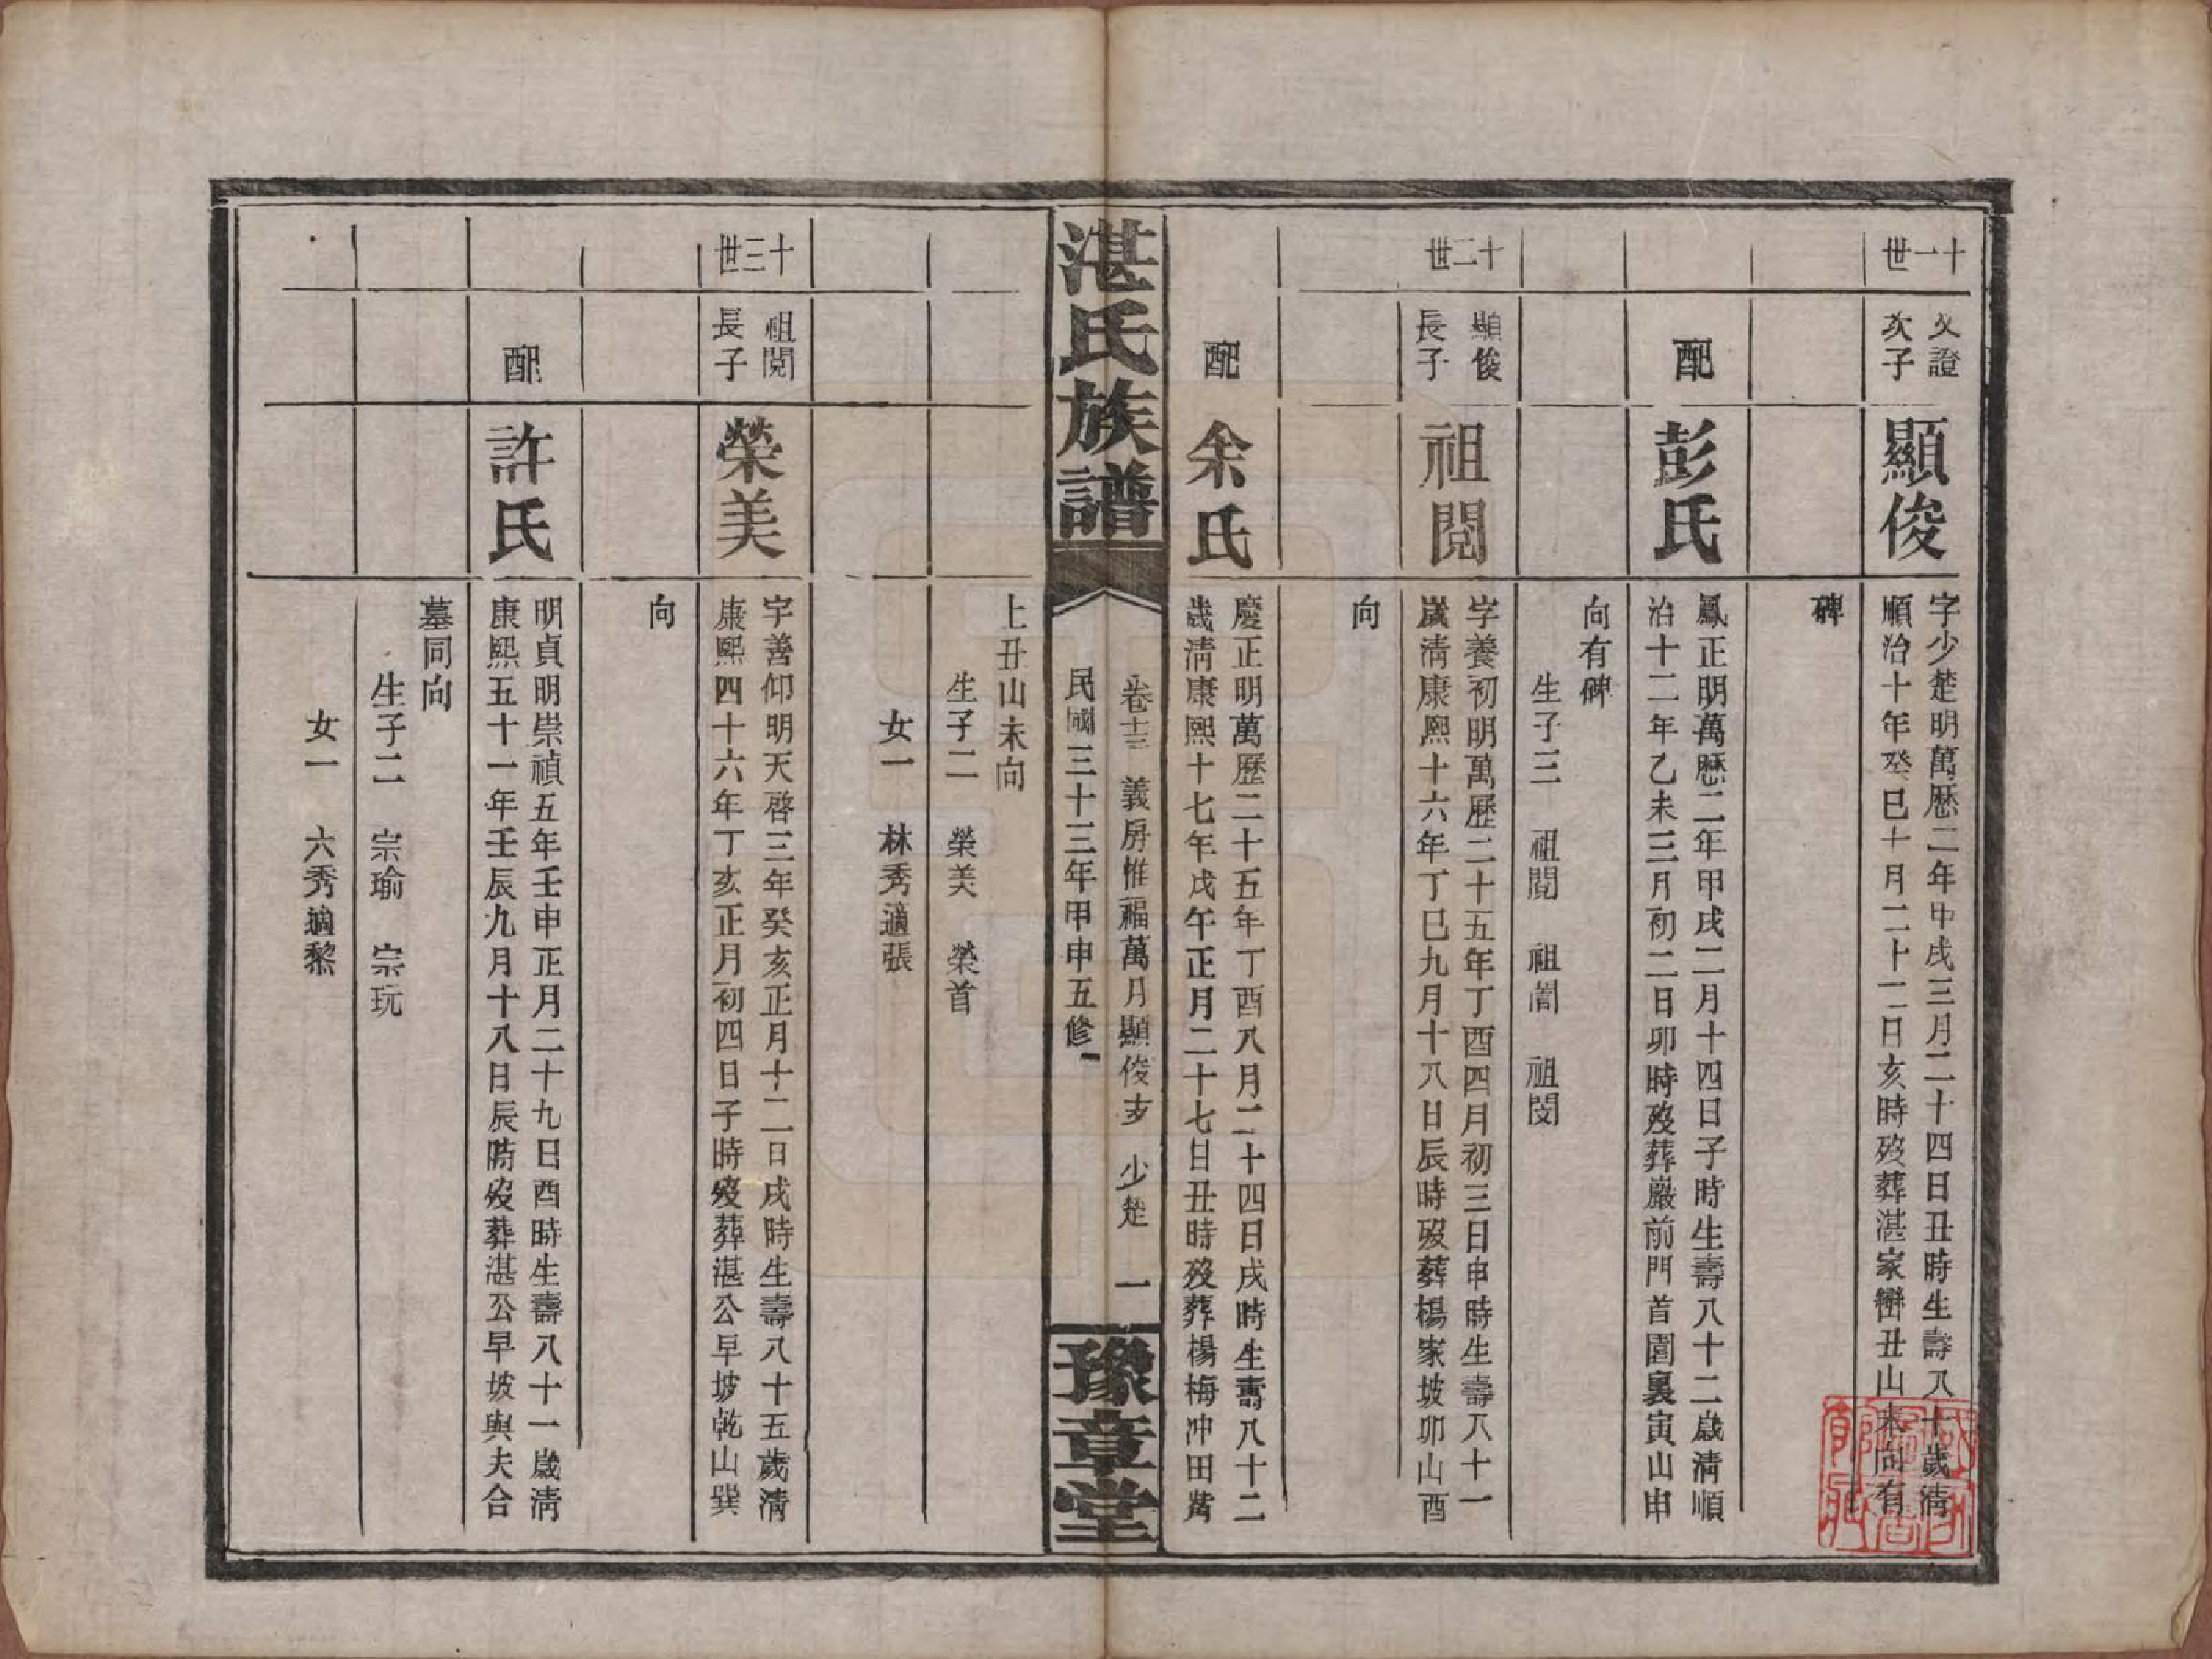 十一世
文證
次子
顯俊
字少楚明萬歷二年甲戌三月二十四日丑時生壽八十歲清
順治十年癸巳十月二十二日亥時歿葬湛家巒丑山未向有
碑
配
彭氏
鳳正明萬歷二年甲戌二月十四日子時生壽八十二歲清順
治十二年乙未三月初二日卯時歿葬巖前門首園裏寅山申
向有碑
生子三 祖閱 祖誾 祖閔
十二世
顯俊
長子
祖閱
字養初明萬歷二十五年丁酉四月初三日申時生壽八十一
歲清康熙十六年丁巳九月十八日辰時歿葬楊家坡卯山酉
向
配
余氏
慶正明萬歷二十五年丁酉八月二十四日戌時生壽八十二
歲清康熙十七年戊午正月二十七日丑時歿葬楊梅冲田
湛氏族譜
卷十三 義房惟福萬月顯俊支 少楚 一
民國三十三年甲申五修
豫章堂
上丑山未向
生子二 榮美 榮首
女一 林秀適張
十三世
祖閱
長子
榮美
字善仰明天啓三年癸亥正月十二日戌時生壽八十五歲清
康熙四十六年丁亥正月初四日子時歿葬湛公早坡乾山巽
向
配
許氏
明貞明崇禎五年壬申正月二十九日酉時生壽八十一歲清
康熙五十一年壬辰九月十八日辰時歿葬湛公早坡與夫合
墓同向
生子二 宗瑜 宗玩
女一 六秀適黎